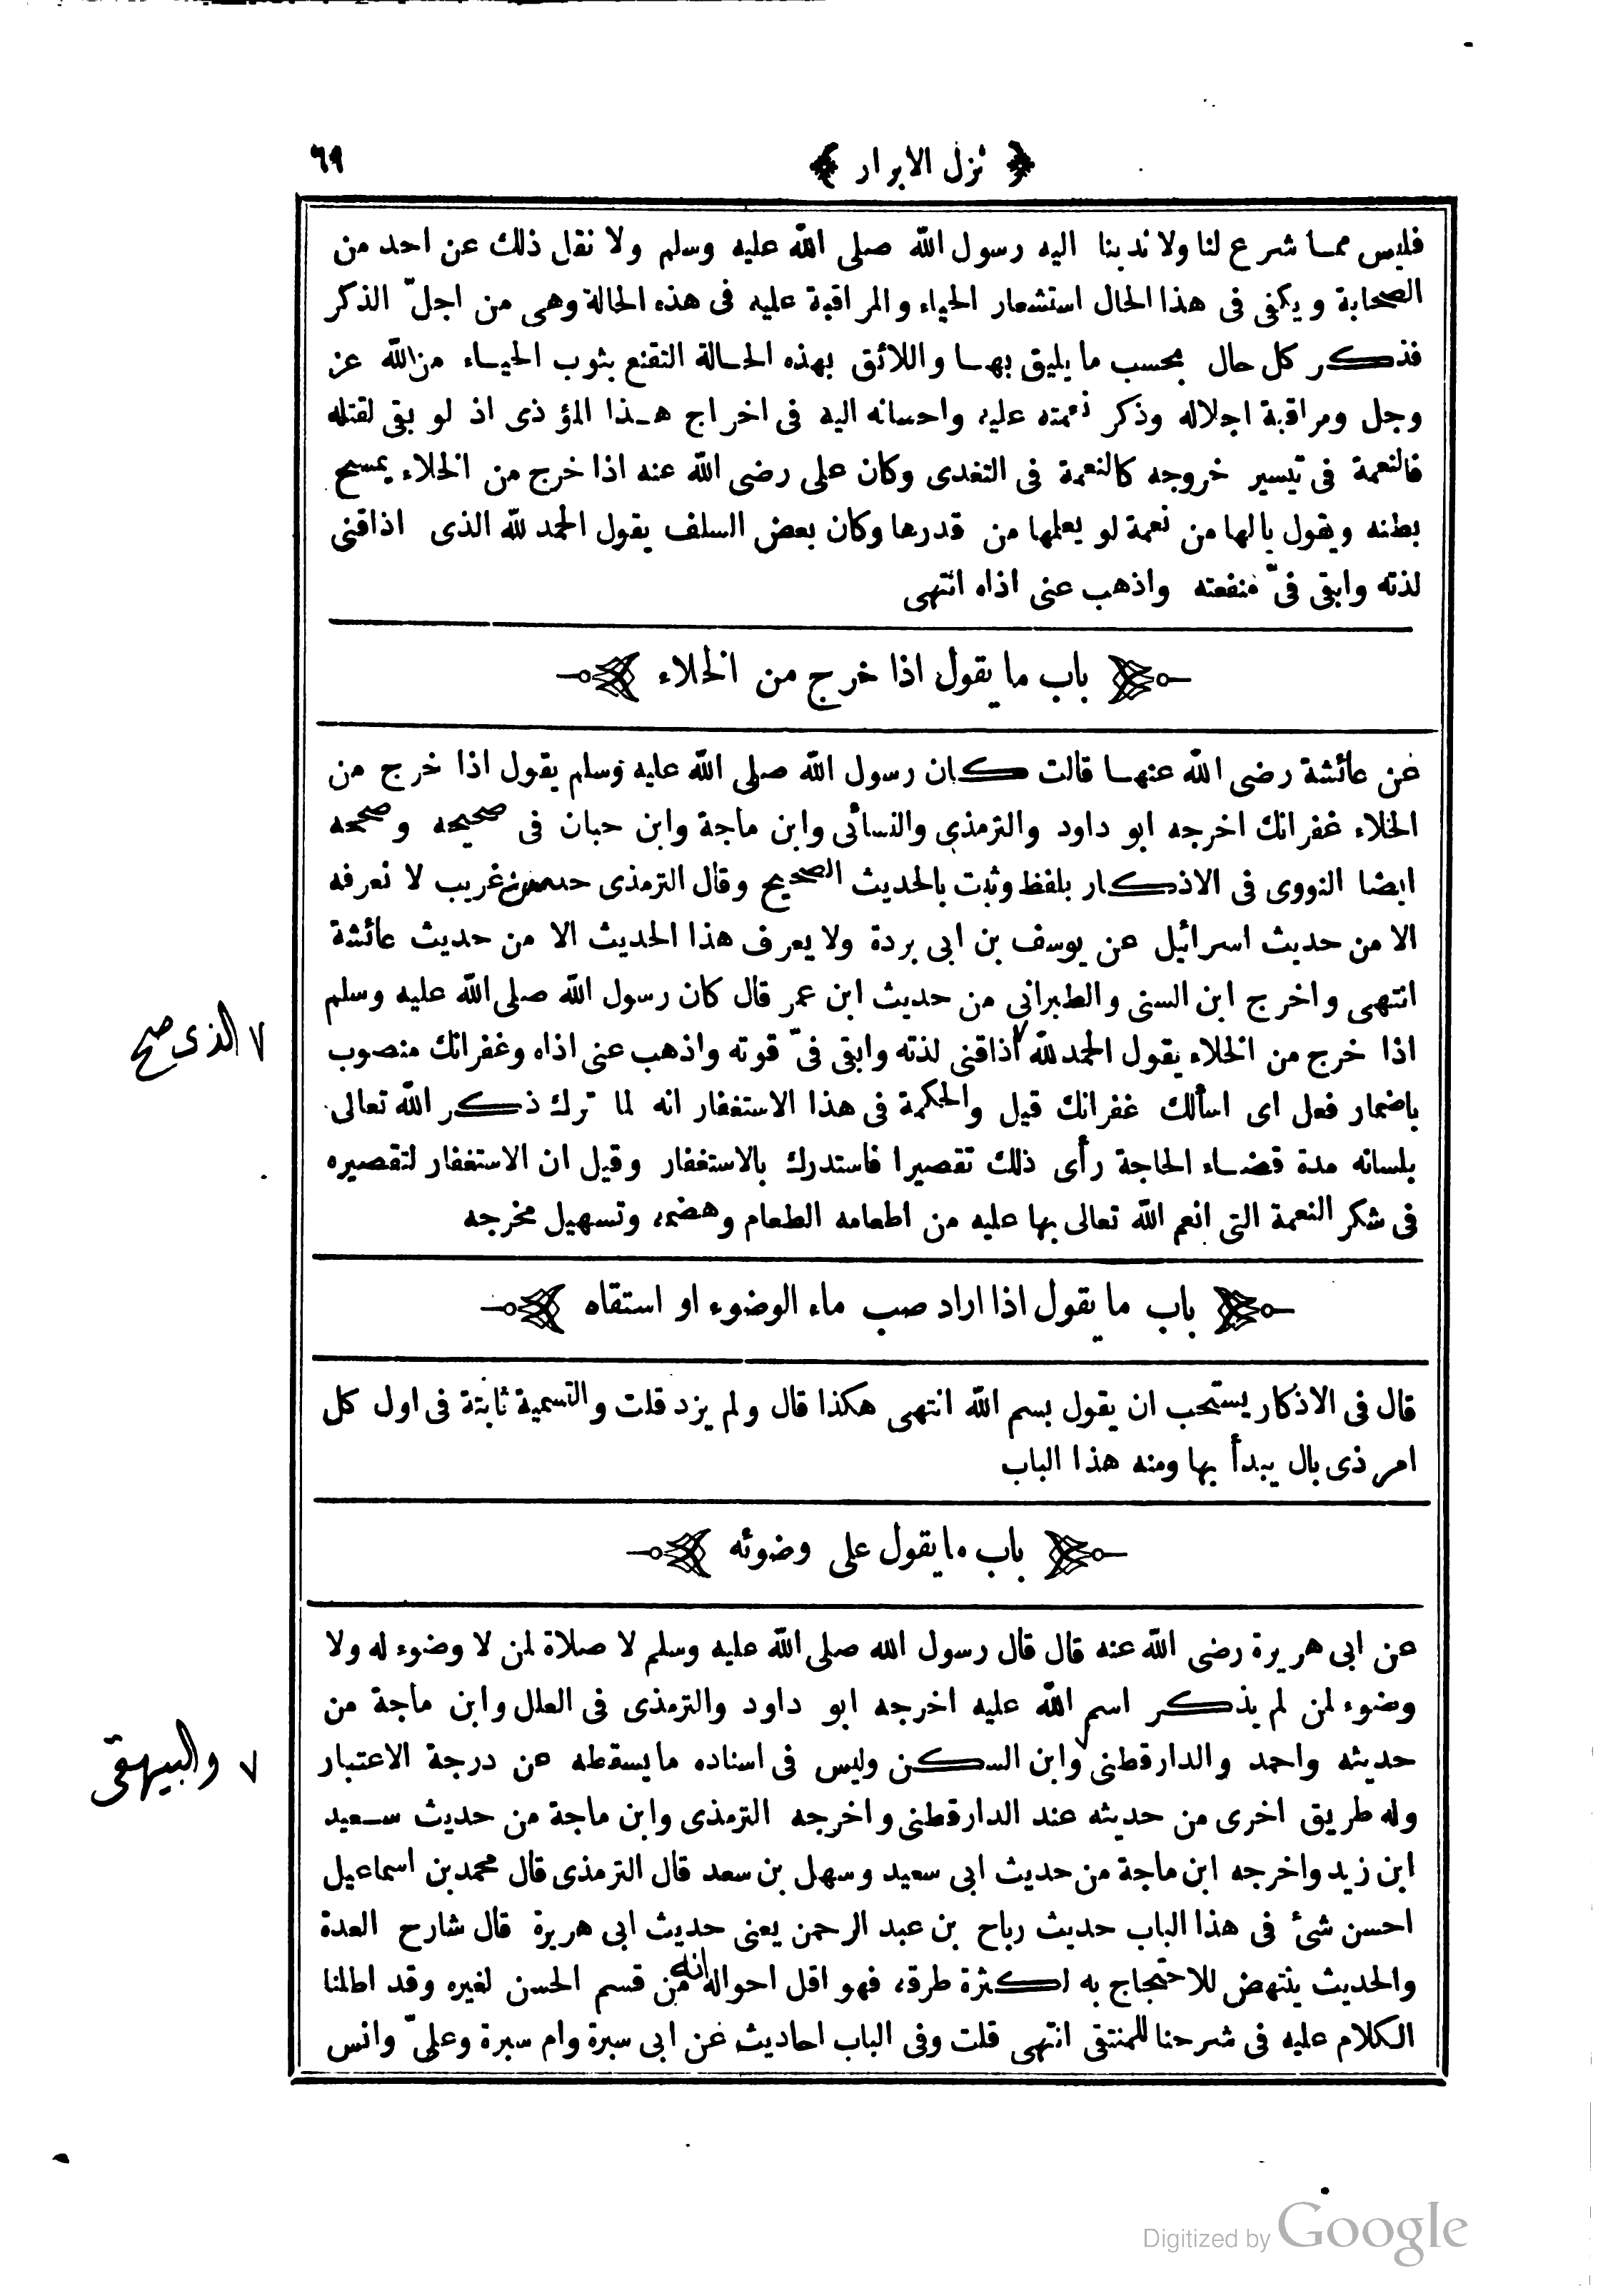 ﴿ نزل الابرار ﴾ ٦٩
فليس مما شرع لنا ولا ندبنا اليه رسول الله صلى الله عليه وسلم ولا نقل ذلك عن احد من
الصحابة ويكفى فى هذا الحال استشعار الحياء والمراقبة عليه فى هذه الحالة وهى من اجلّ الذكر
فذكر كل حال بحسب ما يليق بها واللائق بهذه الحالة التقنع بثوب الحياء من الله عز
وجل ومراقبة اجلاله وذكر نعمته عليه واحسانه اليه فى اخراج هذا المؤذى اذ لو بقى لقتله
فالنعمة فى تيسير خروجه كالنعمة فى التغدى وكان على رضى الله عنه اذا خرج من الخلاء يمسح
بطنه ويقول يالها من نعمة لو يعلمها من قدرها وكان بعض السلف يقول الحمد لله الذى اذاقنى
لذته وابقى فىّ منفعته واذهب عنى اذاه انتهى
باب ما يقول اذا خرج من الخلاء
عن عائشة رضى الله عنها قالت كان رسول الله صلى الله عليه وسلم يقول اذا خرج من
الخلاء غفرانك اخرجه ابو داود والترمذى والنسائى وابن ماجة وابن حبان فى صحيحه وصححه
ايضا النووى فى الاذكار بلفظ وثبت بالحديث الصحيح وقال الترمذى حسن غريب لا نعرفه
الا من حديث اسرائيل عن يوسف بن ابى بردة ولا يعرف هذا الحديث الا من حديث عائشة
انتهى واخرج ابن السنى والطبرانى من حديث ابن عمر قال كان رسول الله صلى الله عليه وسلم
اذا خرج من الخلاء يقول الحمد لله ٧ اذاقنى لذته وابقى فىّ قوته واذهب عنى اذاه وغفرانك منصوب
٧ الذى صح
باضمار فعل اى اسألك غفرانك قيل والحكمة فى هذا الاستغفار انه لما ترك ذكر الله تعالى
بلسانه مدة قضاء الحاجة رأى ذلك تقصيرا فاستدرك بالاستغفار وقيل ان الاستغفار لتقصيره
فى شكر النعمة التى انعم الله تعالى بها عليه من اطعامه الطعام وهضمه وتسهيل مخرجه
باب ما يقول اذا اراد صب ماء الوضوء او استقاه
قال فى الاذكار يستحب ان يقول بسم الله انتهى هكذا قال ولم يزد قلت والتسمية ثابتة فى اول كل
امر ذى بال يبدأ بها ومنه هذا الباب
باب ما يقول على وضوئه
عن ابى هريرة رضى الله عنه قال قال رسول الله صلى الله عليه وسلم لا صلاة لمن لا وضوء له ولا
وضوء لمن لم يذكر اسم الله عليه اخرجه ابو داود والترمذى فى العلل وابن ماجة من
حديثه واحمد والدارقطنى ٧ وابن السكن وليس فى اسناده ما يسقطه عن درجة الاعتبار
٧ والبيهقى
وله طريق اخرى من حديثه عند الدارقطنى واخرجه الترمذى وابن ماجة من حديث سعيد
ابن زيد واخرجه ابن ماجة من حديث ابى سعيد وسهل بن سعد قال الترمذى قال محمد بن اسماعيل
احسن شئ فى هذا الباب حديث رباح بن عبد الرحمن يعنى حديث ابى هريرة قال شارح العدة
والحديث ينتهض للاحتجاج به لكثرة طرقه فهو اقل احواله انه من قسم الحسن لغيره وقد اطلنا
الكلام عليه فى شرحنا للمنتقى انتهى قلت وفى الباب احاديث عن ابى سبرة وام سبرة وعلىّ وانس
Digitized by Google